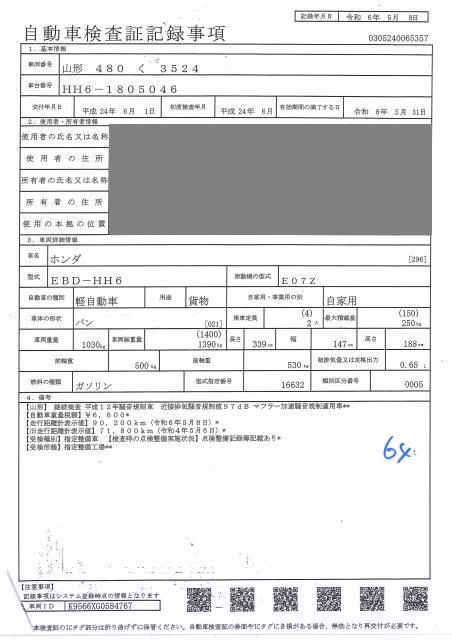 記録年月日 令和 6年 5月 8日
自動車検査証記録事項
0305240065357
1. 基本情報
車両番号 山形 480 く 3524
車台番号 HH6-1805046
交付年月日 平成 24年 6月 1日 初度検査年月 平成 24年 6月 有効期間の満了する日 令和 8年 5月 31日
2. 使用者・所有者情報
使用者の氏名又は名称
使用者の住所
所有者の氏名又は名称
所有者の住所
使用の本拠の位置
3. 車両詳細情報
車名 ホンダ [296]
型式 EBD-HH6 原動機の型式 E07Z
自動車の種別 軽自動車 用途 貨物 自家用・事業用の別 自家用
車体の形状 バン [021] 乗車定員 (4) 2人 最大積載量 (150) 250kg
車両重量 1030kg 車両総重量 (1400) 1390kg 長さ 339cm 幅 147cm 高さ 188cm
前軸重 500kg 後軸重 530kg 総排気量又は定格出力 0.65 L
燃料の種類 ガソリン 型式指定番号 16632 類別区分番号 0005
4. 備考
【山形】 継続検査 平成12年騒音規制車 近接排気騒音規制値97dB マフラー加速騒音規制適用車**
【自動車重量税額】¥6,600*
【走行距離計表示値】90,200km(令和6年5月8日)*
【旧走行距離計表示値】71,800km(令和4年5月6日)*
【受検種別】指定整備車 【検査時の点検整備実施状況】点検整備記録簿記載あり*
【受検形態】指定整備工場**
64
【注意事項】
記録事項はシステム登録時点の情報となります
車両ID K9566XG0584767
車検査証のICタグ部分は折り曲げずに保管ください。自動車検査証の券面やICタグにき損がある場合、無効となり再交付が必要です。